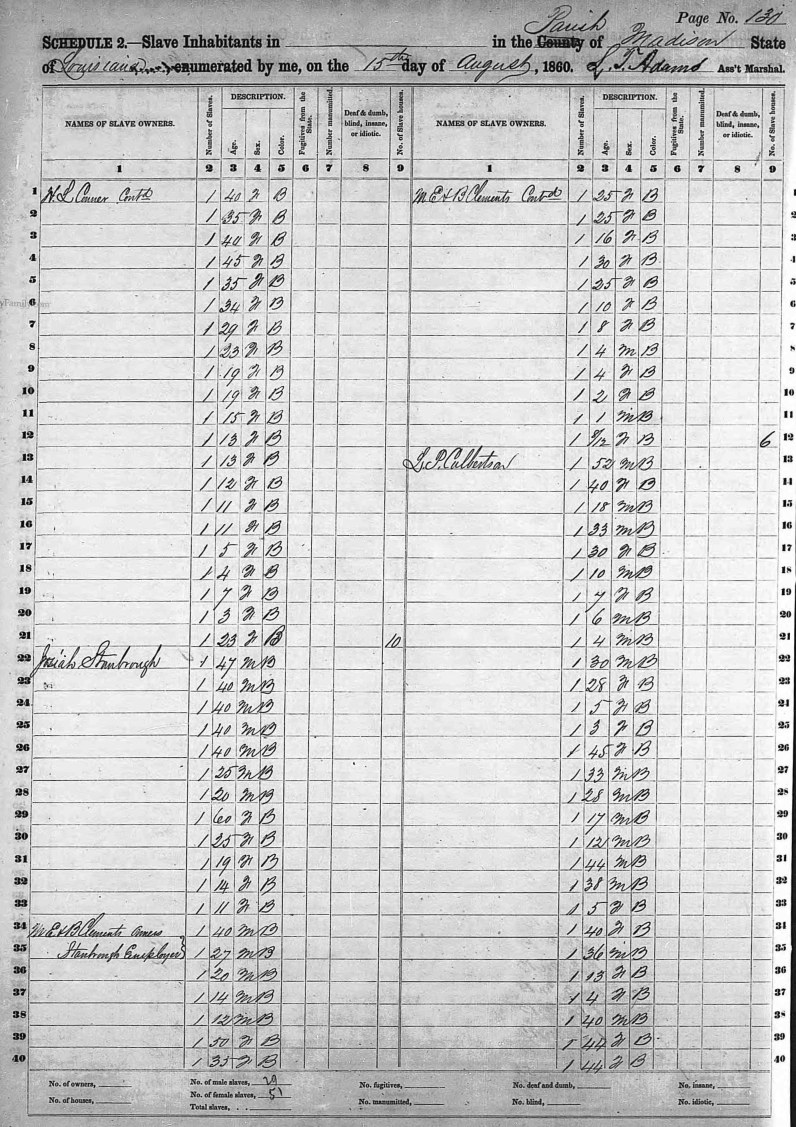 Page No. 130
SCHEDULE 2.—Slave Inhabitants in in the County Parish of Madison State
of Louisiana enumerated by me, on the 15th day of August, 1860. L. T. Adams Ass't Marshal.
NAMES OF SLAVE OWNERS. Number of Slaves. DESCRIPTION. Age. Sex. Color. Fugitives from the State. Number manumitted. Deaf & dumb, blind, insane, or idiotic. No. of Slave houses. NAMES OF SLAVE OWNERS. Number of Slaves. DESCRIPTION. Age. Sex. Color. Fugitives from the State. Number manumitted. Deaf & dumb, blind, insane, or idiotic. No. of Slave houses.
1 2 3 4 5 6 7 8 9 1 2 3 4 5 6 7 8 9
1 H. L. Conner Contd 1 40 F B M E & B Clements Contd 1 25 F B 1
2 1 35 F B 1 25 F B 2
3 1 40 F B 1 16 F B 3
4 1 45 F B 1 30 F B 4
5 1 35 F B 1 25 F B 5
6 1 34 F B 1 10 F B 6
7 1 29 F B 1 8 F B 7
8 1 23 F B 1 4 M B 8
9 1 19 F B 1 4 F B 9
10 1 19 F B 1 2 F B 10
11 1 15 F B 1 1 M B 11
12 1 13 F B 1 F B 6 12
13 1 13 F B L. P. Culbertson 1 52 M B 13
14 1 12 F B 1 40 F B 14
15 1 11 F B 1 18 M B 15
16 1 11 F B 1 33 M B 16
17 1 5 F B 1 30 F B 17
18 1 4 F B 1 10 M B 18
19 1 7 F B 1 7 F B 19
20 1 3 F B 1 6 M B 20
21 1 23 F B 10 1 4 M B 21
22 Josiah Stanbrough 1 47 M B 1 30 M B 22
23 1 40 M B 1 28 F B 23
24 1 40 M B 1 5 F B 24
25 1 40 M B 1 3 F B 25
26 1 40 M B 1 45 F B 26
27 1 25 M B 1 33 M B 27
28 1 20 M B 1 28 M B 28
29 1 60 F B 1 17 M B 29
30 1 25 F B 1 12 M B 30
31 1 19 F B 1 44 M B 31
32 1 14 F B 1 38 M B 32
33 1 11 F B 1 5 F B 33
34 M E & B Clements owners 1 40 M B 1 40 F B 34
35 Stanbrough Employer 1 27 M B 1 36 M B 35
36 1 20 M B 1 13 F B 36
37 1 14 M B 1 4 F B 37
38 1 12 M B 1 40 M B 38
39 1 50 F B 1 44 F B 39
40 1 35 F B 1 44 F B 40
No. of owners, No. of male slaves, 29 No. fugitives, No. deaf and dumb, No. insane,
No. of houses, No. of female slaves, 51 No. manumitted, No. blind, No. idiotic,
Total slaves,